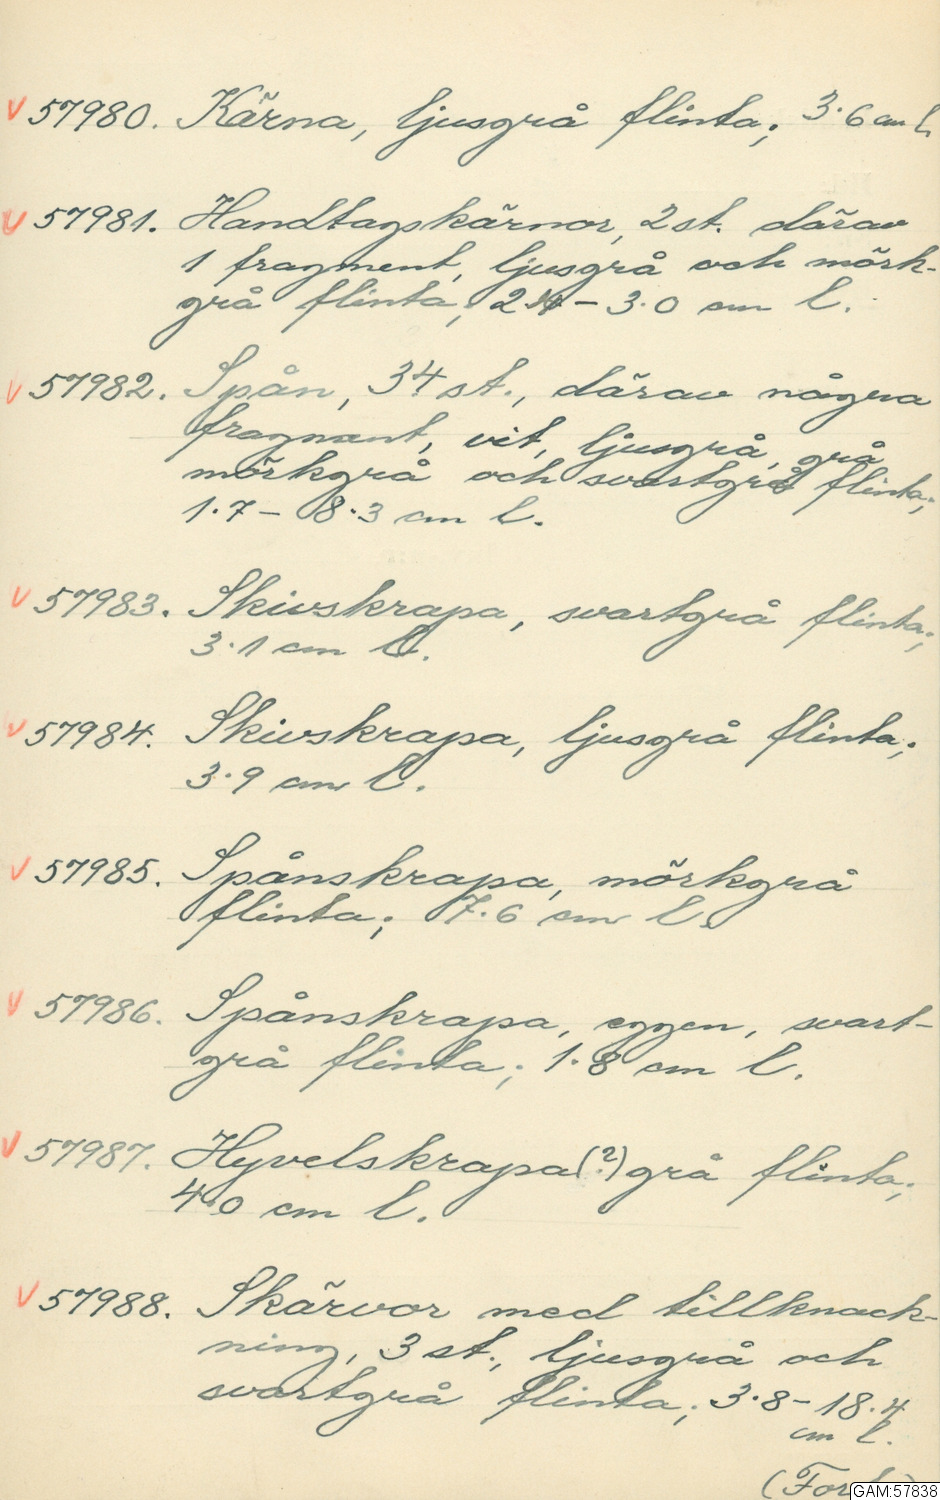 V 57980. Kärna, ljusgrå flinta; 3.6 cm l.
V 57981. Handtagskärnor, 2 st. därav
1 fragment, ljusgrå och mörk-
grå flinta, 2.4 - 3.0 cm l.
V 57982. Spån, 34 st., därav några
fragmant, vit, ljusgrå, grå
mörkgrå och svartgrå flinta;
1.7 - 8.3 cm l.
V 57983. Skivskrapa, svartgrå flinta;
3.1 cm l.
V 57984. Skivskrapa, ljusgrå flinta;
3.9 cm l.
V 57985. Spånskrapa, mörkgrå
flinta; 7.6 cm l.
V 57986. Spånskrapa, eggen, svart-
grå flinta; 1.8 cm l.
V 57987. Hyvelskrapa (?) grå flinta;
4.0 cm l.
V 57988. Skärvor med tillknack-
ning, 3 st., ljusgrå och
svartgrå flinta; 3.8 - 18.4
cm l.
GAM:57838